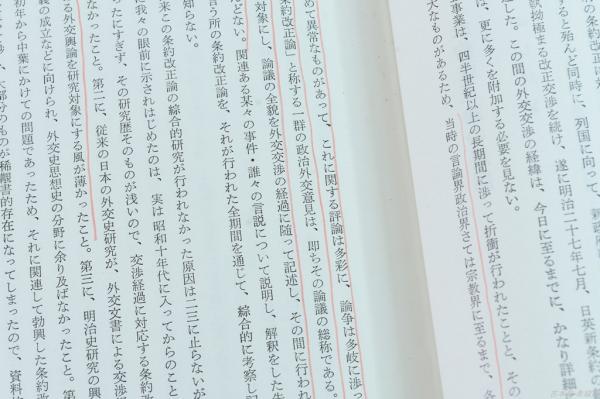 すると殆んど同時に、列国に向って、新政府
執拗極まる改正交渉を続け、遂に明治二十七年七月、日英新条約の
した。この間の外交交渉の経緯は、今日に至るまでに、かなり詳細
は、更に多くを附加する必要を見ない。
事業は、四半世紀以上の長期間に渉って折衝が行われたことと、その
大なものがあるため、当時の言論界政治界さては宗教界に至るまで、各
めて異常なものがあって、これに関する評論は多彩に、論争は多岐に渉っ
条約改正論」と称する一群の政治外交意見は、即ちその論議の総称である。
対象にし、論議の全貌を外交交渉の経過に随って記述し、その間に行われ
らない。関連ある某々の事件・誰々の言説について説明し、解釈をした先
言う所の条約改正論を、それが行われた全期間を通じて、綜合的に考察し記
知らない。
来この条約改正論の綜合的研究が行われなかった原因は二三に止らないが
に我々の眼前に示されはじめたのは、実は昭和十年代に入ってからのこと
ったにすぎず、その研究歴そのものが浅いので、交渉経過に対応する条約改
なかったこと。第二に、従来の日本の外交史研究が、外交文書による交渉
る外交輿論を研究対象にする風が薄かったこと。第三に、明治史研究の興
義の成立などに向けられ、外交史思想史の分野に余り及ばなかったこと。第
初年から中葉にかけての問題であったため、それに関連して勃興した条約改
大部分のものが稀覯書的存在になってしまったので、資料